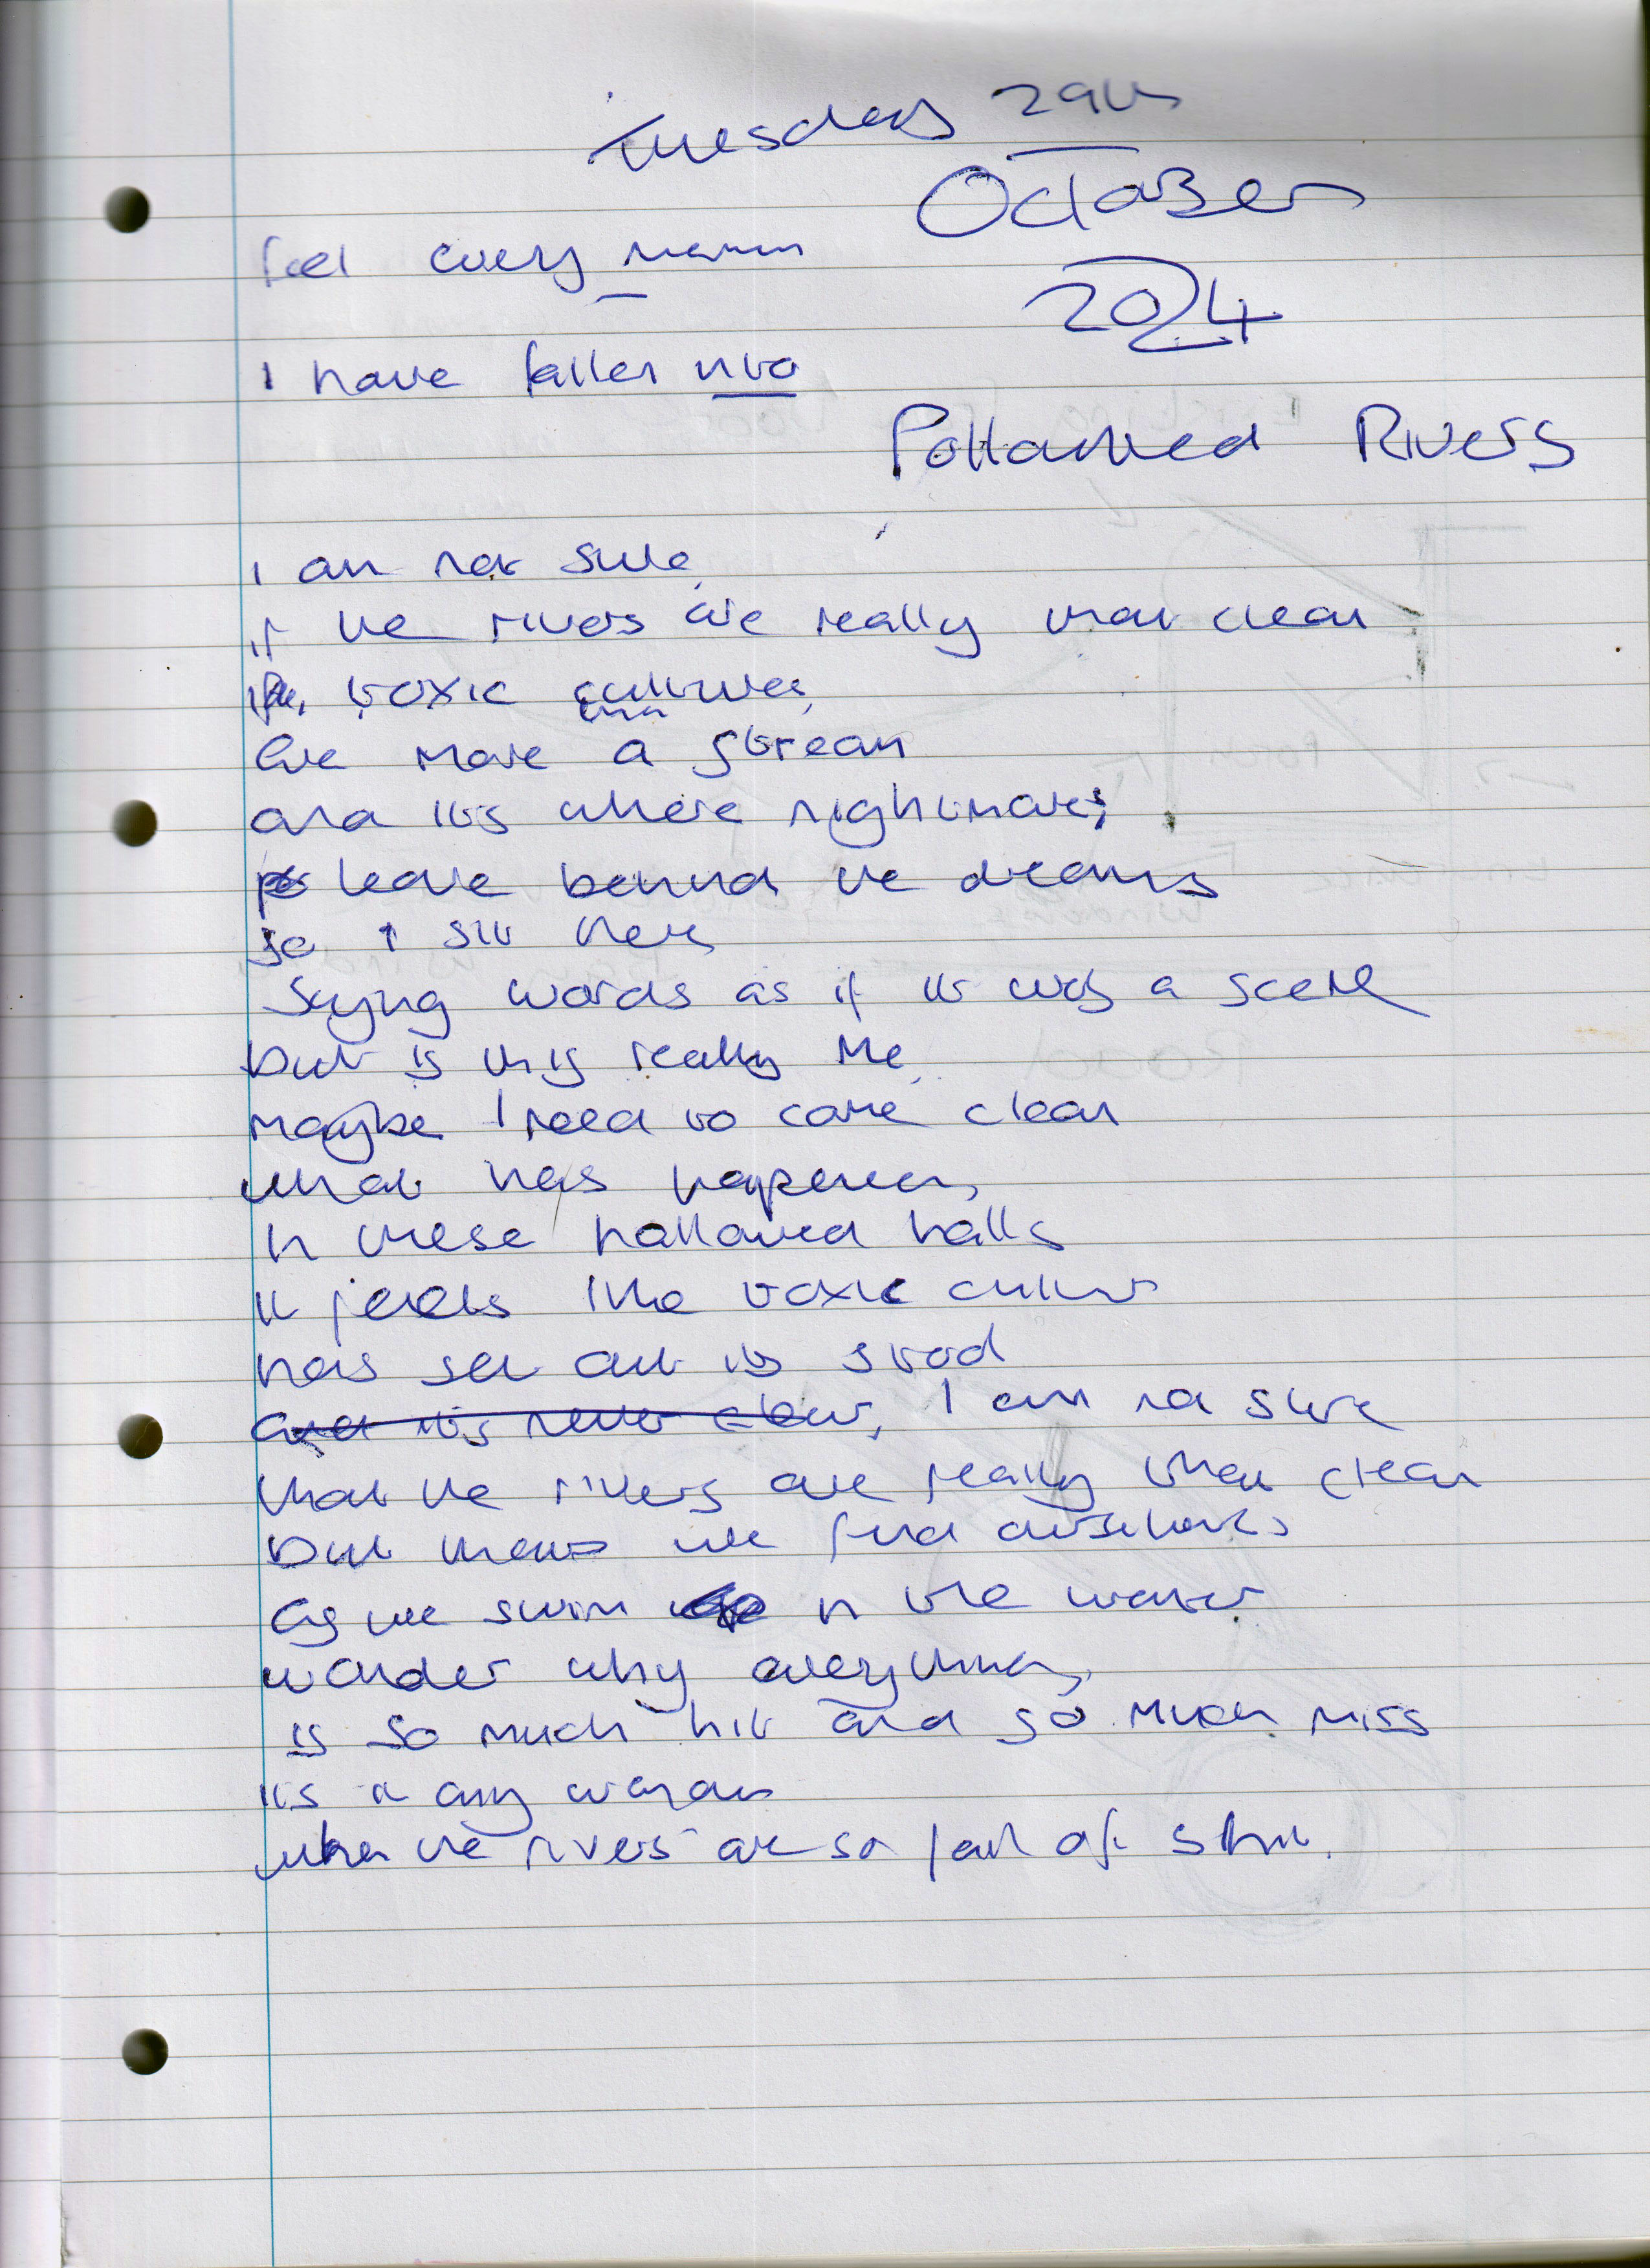 Tuesday 29th
October
2024
feel every
I have fallen into
Polluted Rivers
I am not sure
if the rivers are really that clean
toxic cultures
are more a stream
and its where nightmares
leave behind the dreams
so I sit here
Saying words as if it was a scene
but is this really me
maybe I need to come clean
what has happened
in these hallowed halls
it feels like toxic culture
has set out its stool
and its never clear, I am not sure
that the rivers are really that clean
but we find ourselves
as we swim in the water
wonder why everything
is so much hit and so much miss
its any wonder
when the rivers are so full of shit.